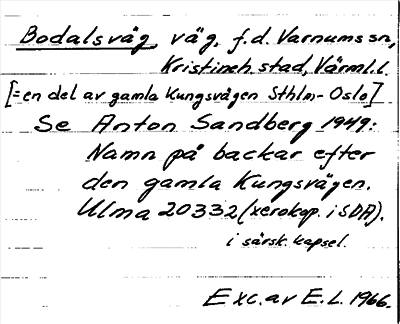 Bodalsväg, väg, f.d. Varnums sn,
Kristineh. stad, Värml. l.
[=en del av gamla Kungsvägen Sthlm-Oslo]
Se Anton Sandberg 1949:
Namn på backar efter
den gamla Kungsvägen.
Ulma 20332 (xerokop. i SDA).
i särsk. kapsel.
Exc. av E.L. 1966.